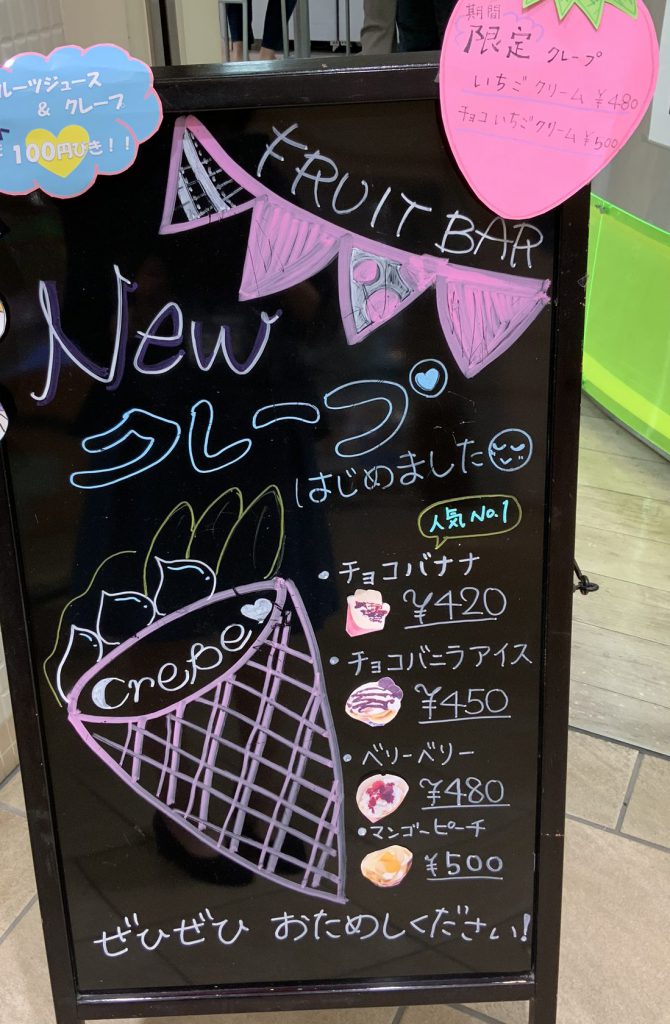 ルーツジュース
& クレープ
100円びき!!
期間
限定 クレープ
いちごクリーム ¥480
チョコいちごクリーム ¥500
FRUIT BAR
New
クレープ
はじめました
人気 No.1
・チョコバナナ
¥420
・チョコバニラアイス
¥450
・ベリーベリー
¥480
・マンゴーピーチ
¥500
Crepe
ぜひぜひ おためしください!